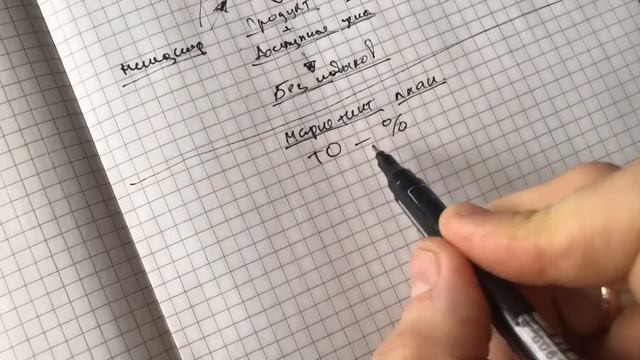 Продукт
+
Доступная цена
Без
маркетинг план
ТО - %